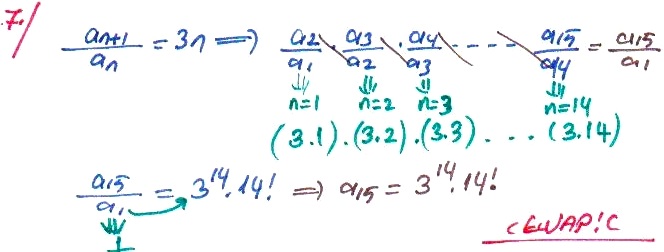 7/
a_{n+1}/a_n = 3n ⟹ a_2/a_1 · a_3/a_2 · a_4/a_3 ---- a_15/a_14 = a_15/a_1
⇓ ⇓ ⇓ ⇓
n=1 n=2 n=3 n=14
(3.1).(3.2).(3.3). . . . (3.14)
a_15/a_1 = 3^14.14! ⟹ a_15 = 3^14.14!
⇓
1
CEVAP!C